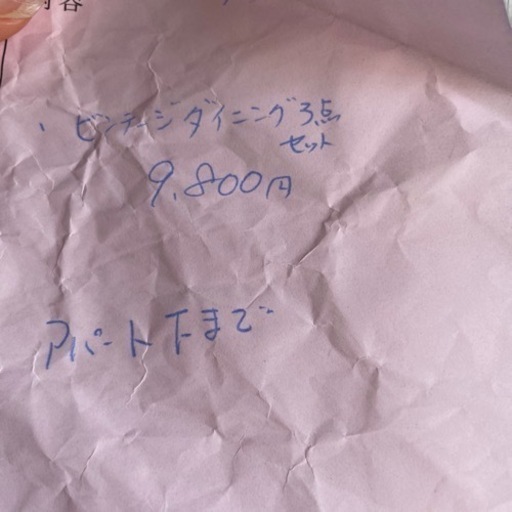 内容
・ビンテージダイニング3点
セット
9.800円
アパート下まで